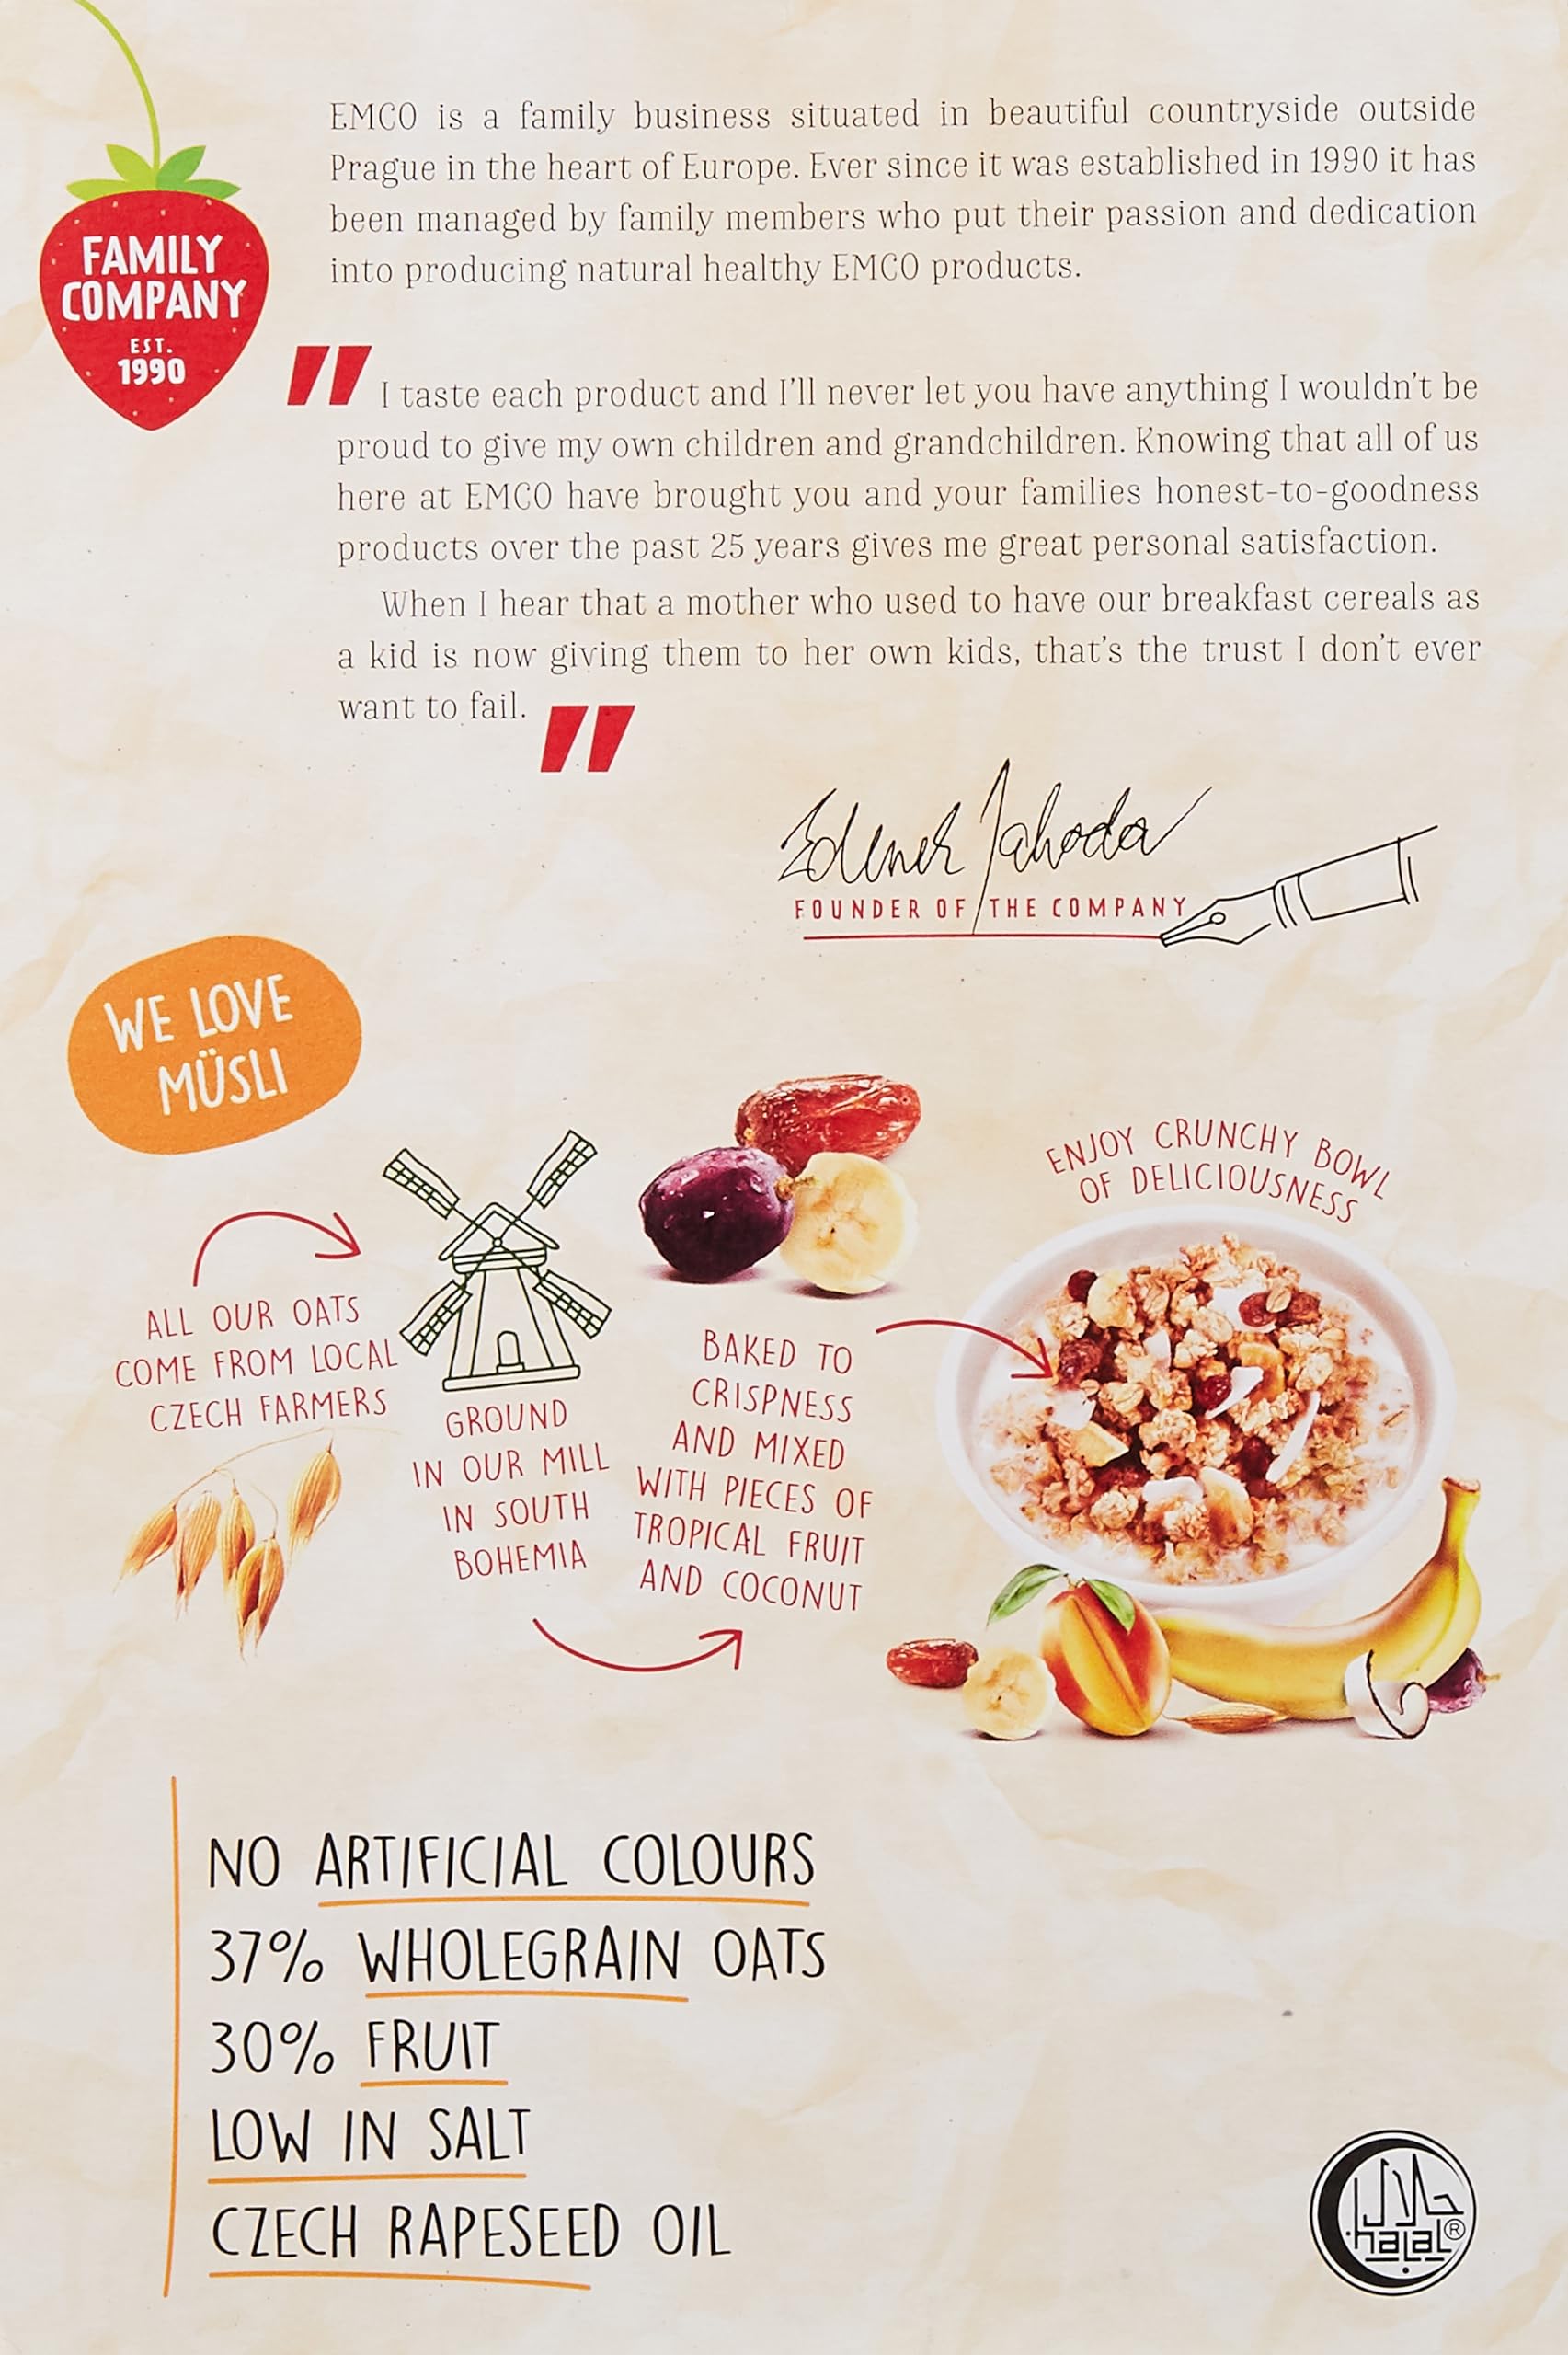 EMCO is a family business situated in beautiful countryside outside
Prague in the heart of Europe. Ever since it was established in 1990 it has
been managed by family members who put their passion and dedication
into producing natural healthy EMCO products.
FAMILY
COMPANY
EST.
1990
" I taste each product and I'll never let you have anything I wouldn't be
proud to give my own children and grandchildren. Knowing that all of us
here at EMCO have brought you and your families honest-to-goodness
products over the past 25 years gives me great personal satisfaction.
When I hear that a mother who used to have our breakfast cereals as
a kid is now giving them to her own kids, that's the trust I don't ever
want to fail. "
Zdenek Jahoda
FOUNDER OF THE COMPANY
WE LOVE
MÜSLI
ALL OUR OATS
COME FROM LOCAL
CZECH FARMERS
GROUND
IN OUR MILL
IN SOUTH
BOHEMIA
BAKED TO
CRISPNESS
AND MIXED
WITH PIECES OF
TROPICAL FRUIT
AND COCONUT
ENJOY CRUNCHY BOWL
OF DELICIOUSNESS
NO ARTIFICIAL COLOURS
37% WHOLEGRAIN OATS
30% FRUIT
LOW IN SALT
CZECH RAPESEED OIL
حلال
halal®